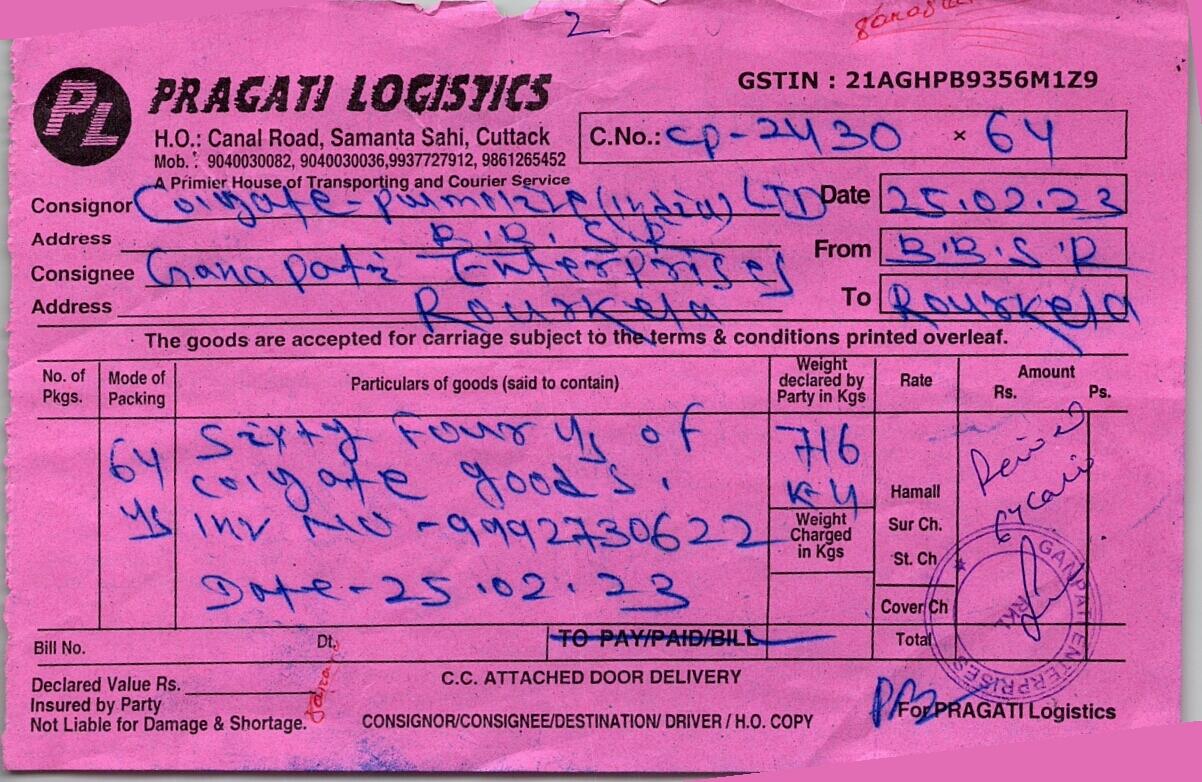 2
PL
PRAGATI LOGISTICS
GSTIN : 21AGHPB9356M1Z9
H.O.: Canal Road, Samanta Sahi, Cuttack
Mob. : 9040030082, 9040030036,9937727912, 9861265452
A Primier House of Transporting and Courier Service
C.No.: CP-2430 × 64
Consignor Colgate-Palmolive (India) LTD Date 25.02.23
Address B.B.S.R
From B.B.S.R
Consignee Ganapati Enterprises
Address Rourkela
To Rourkela
The goods are accepted for carriage subject to the terms & conditions printed overleaf.
No. of Pkgs. Mode of Packing Particulars of goods (said to contain) Weight declared by Party in Kgs Rate Amount Rs. Ps.
64 Sixty Four of 716
colgate goods. Kg
Inv No - 9992730622
Date - 25.02.23
Weight Charged in Kgs
Hamall
Sur Ch.
St. Ch
Cover Ch
Total
GANPATI ENTERPRISES
RKL
Bill No. Dt. TO PAY/PAID/BILL
Declared Value Rs.
Insured by Party
Not Liable for Damage & Shortage.
C.C. ATTACHED DOOR DELIVERY
CONSIGNOR/CONSIGNEE/DESTINATION/ DRIVER / H.O. COPY
For PRAGATI Logistics